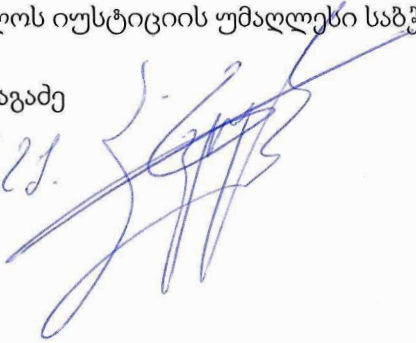 ლოს იუსტიციის უმაღლესი საბჭ
აგაძე